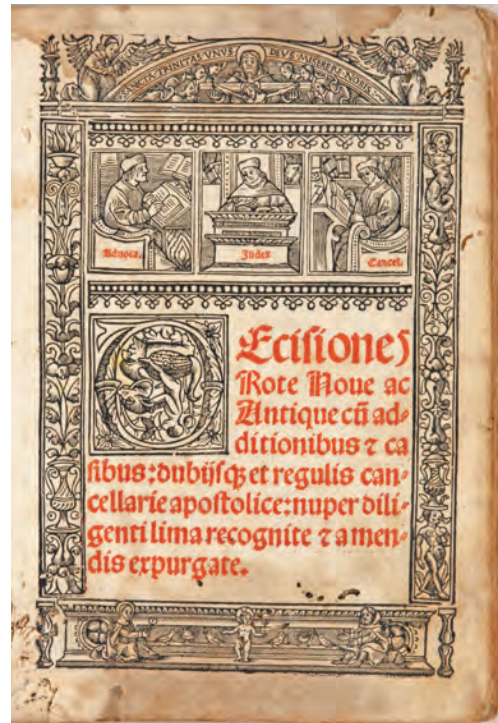 SANCTA TRINITAS VNVS DEVS MISERERE NOBIS
Aduoca.
Judex
Cancel.
Decisiones
Rote Noue ac
Antique cū ad⸗
ditionibus ⁊ ca
sibus: dubijsqꝫ et regulis can⸗
cellarie apostolice: nuper dili⸗
genti lima recognite ⁊ a men⸗
dis expurgate.